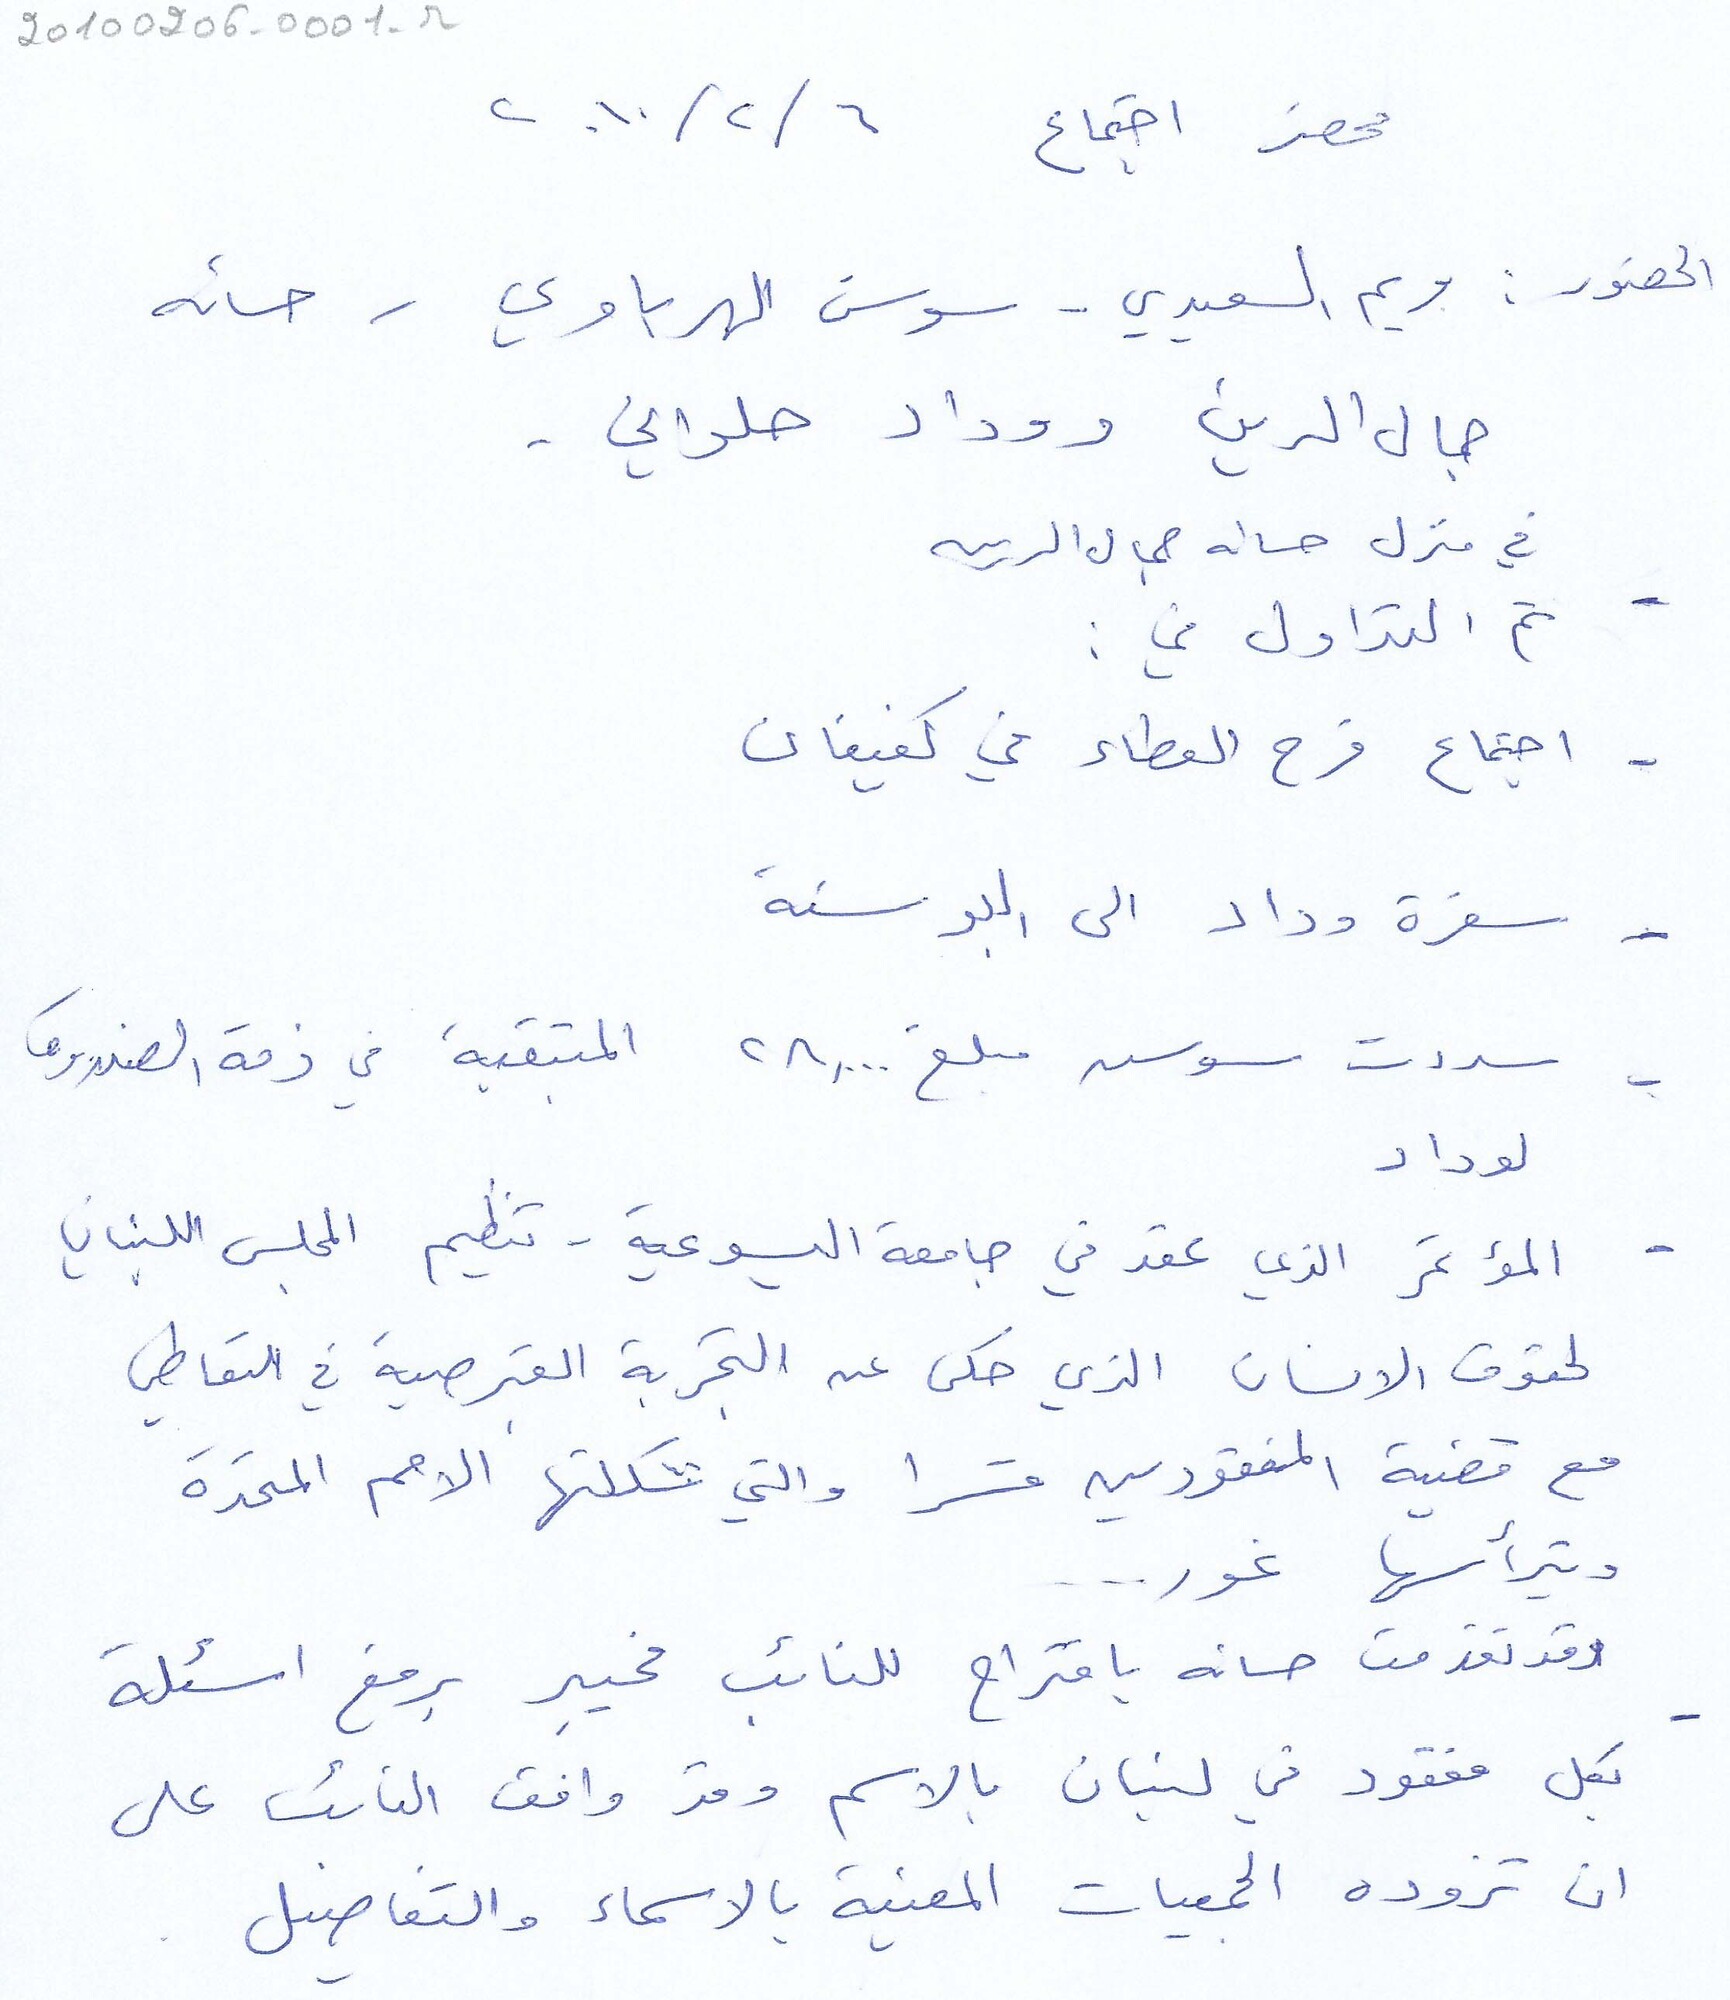 20100206-0001-r
محضر اجتماع ٦/٢/٢٠١٠
الحضور: مريم السعيدي - سوسن الهرباوي - حسانه
جمال الدين ووداد حلواني -
في منزل حسانه جمال الدين
- تم التداول في:
- اجتماع فرح العطاء في كفيفان
- سفرة وداد الى البوسنة
- سددت سوسن مبلغ ٢٨,٠٠٠ المتبقية في ذمة الصندوق
لوداد
- المؤتمر الذي عقد في جامعة اليسوعية - تنظيم المجلس اللبناني
لحقوق الانسان الذي حكى عن التجربة القبرصية في التعاطي
مع قضية المفقودين قسرا والتي شكلتها الامم المتحدة
ويترأسها غور....
- وقد تقدمت حسانه باقتراح للنائب مخيبر برفع اسئلة
بكل مفقود في لبنان بالاسم وقد وافق النائب على
ان تزوده الجمعيات المعنية بالاسماء والتفاصيل